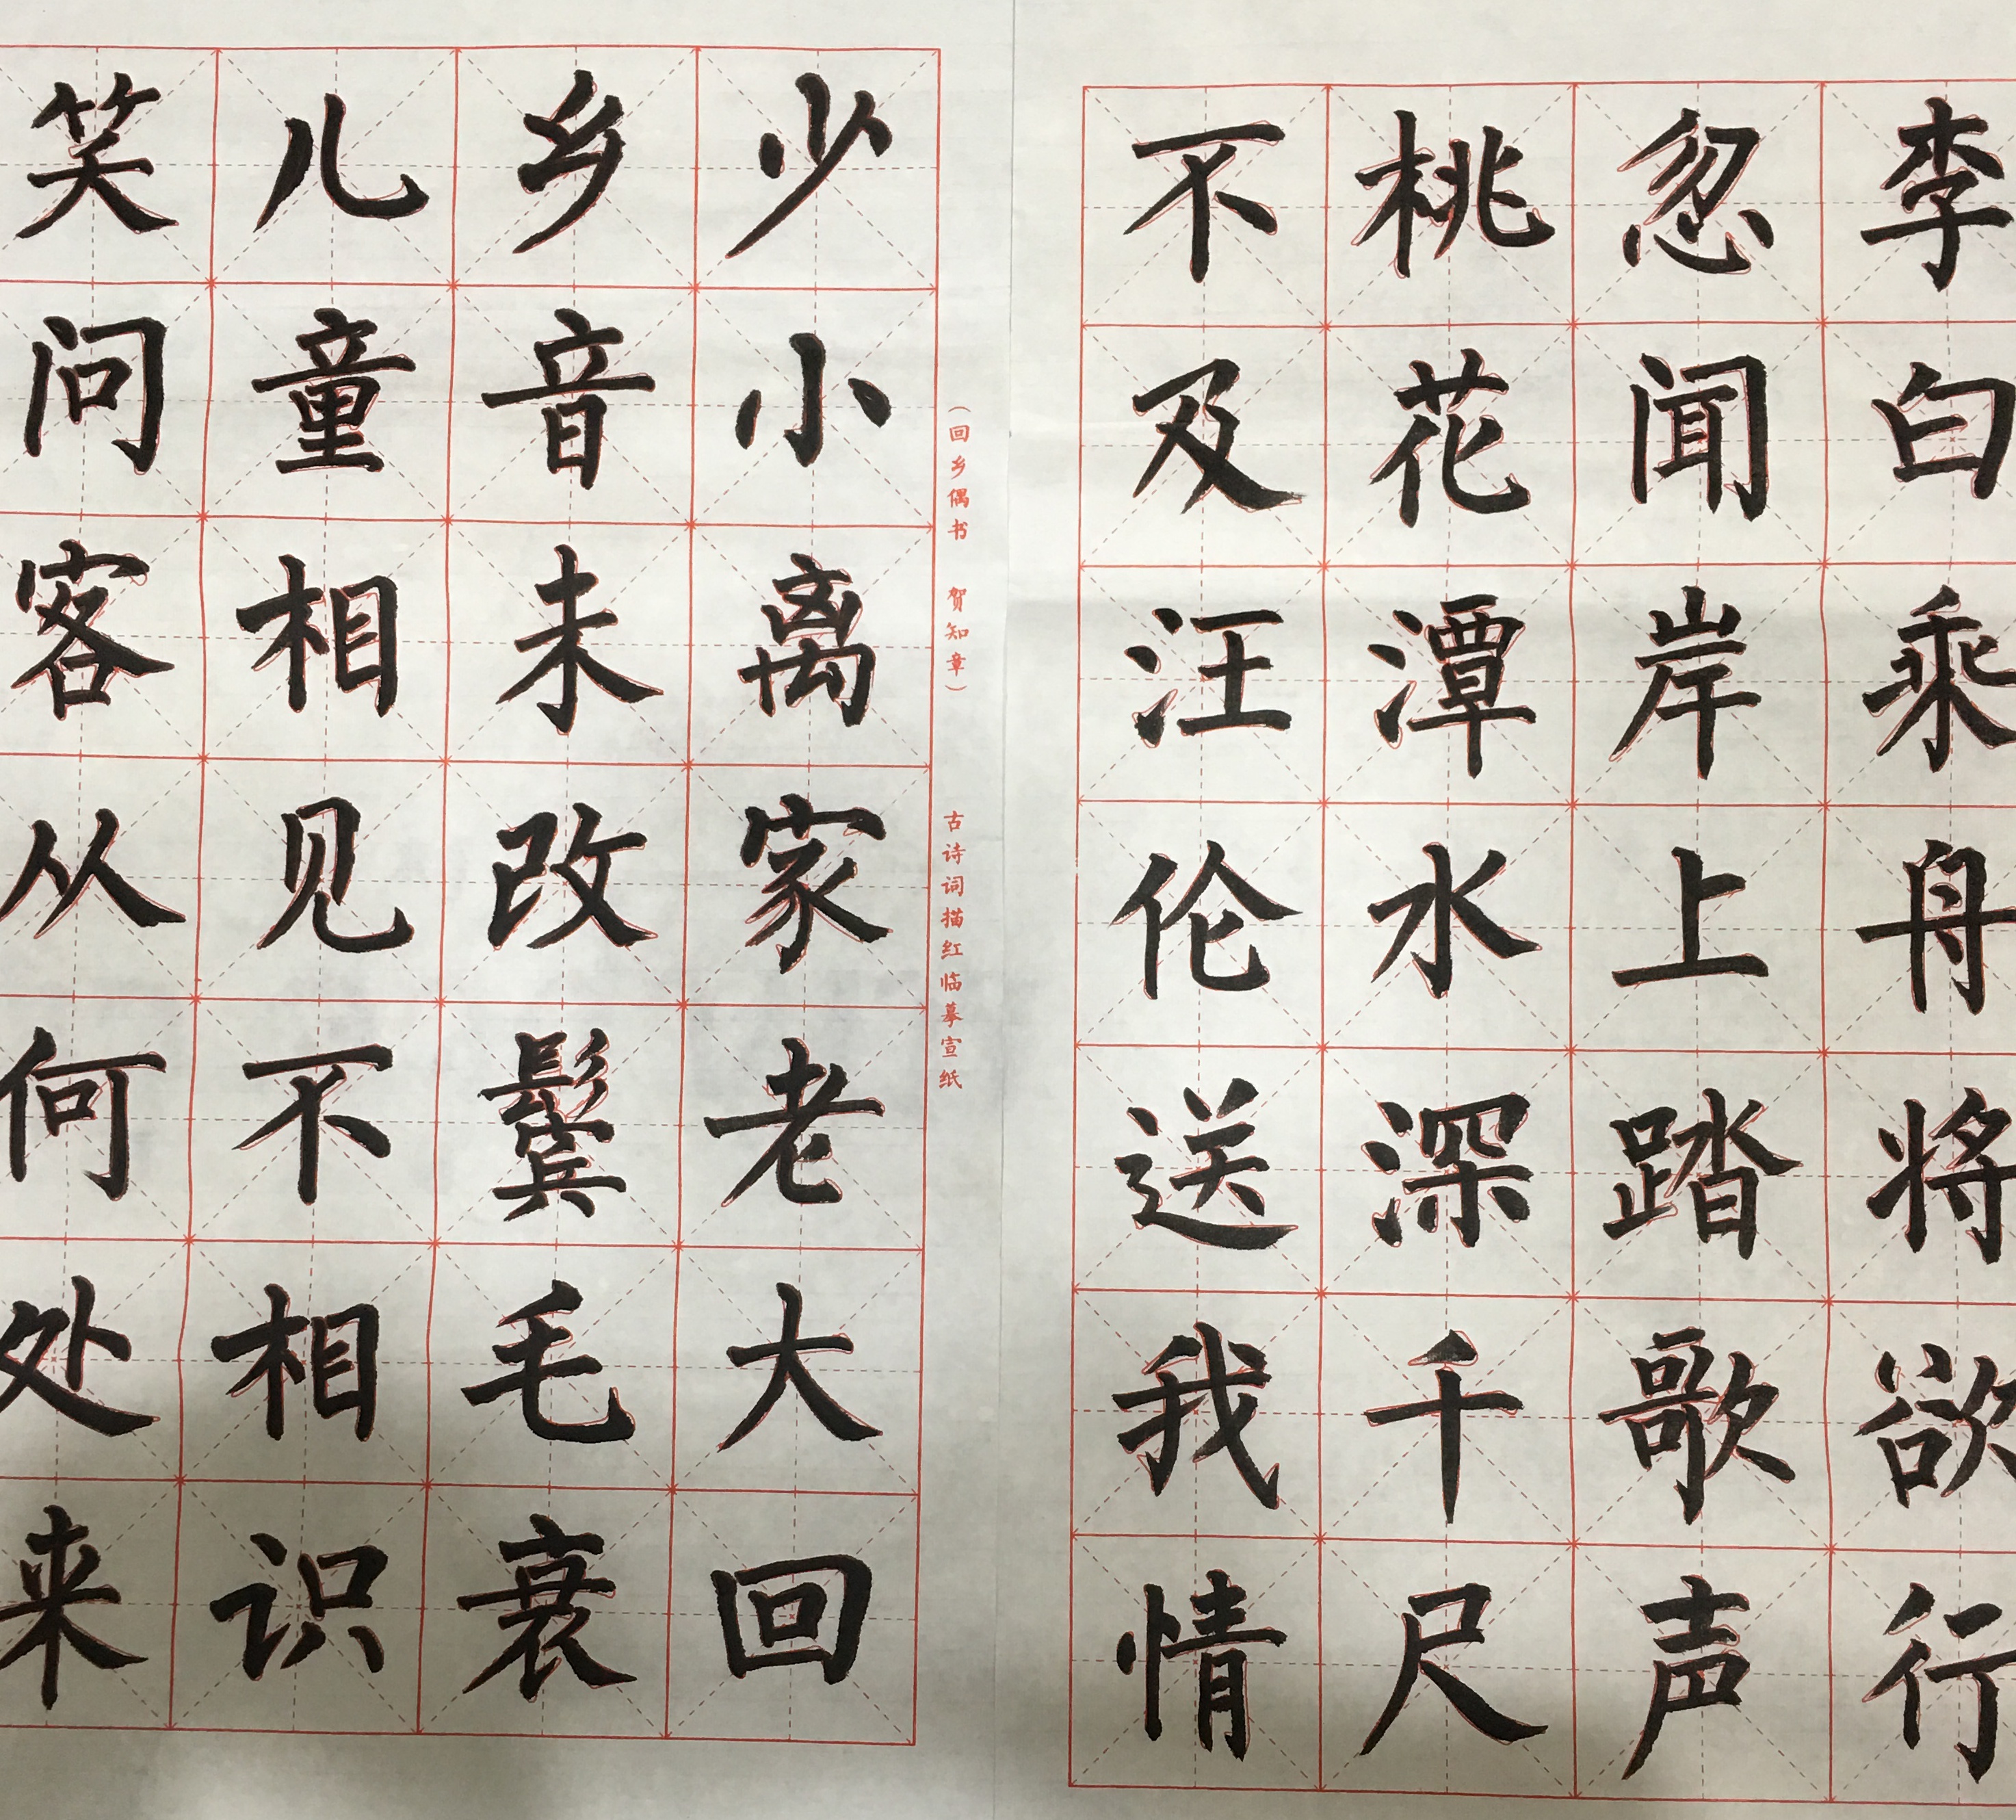 李白乘舟将欲行
忽闻岸上踏歌声
桃花潭水深千尺
不及汪伦送我情
（回乡偶书 贺知章） 古诗词描红临摹宣纸
少小离家老大回
乡音未改鬓毛衰
儿童相见不相识
笑问客从何处来